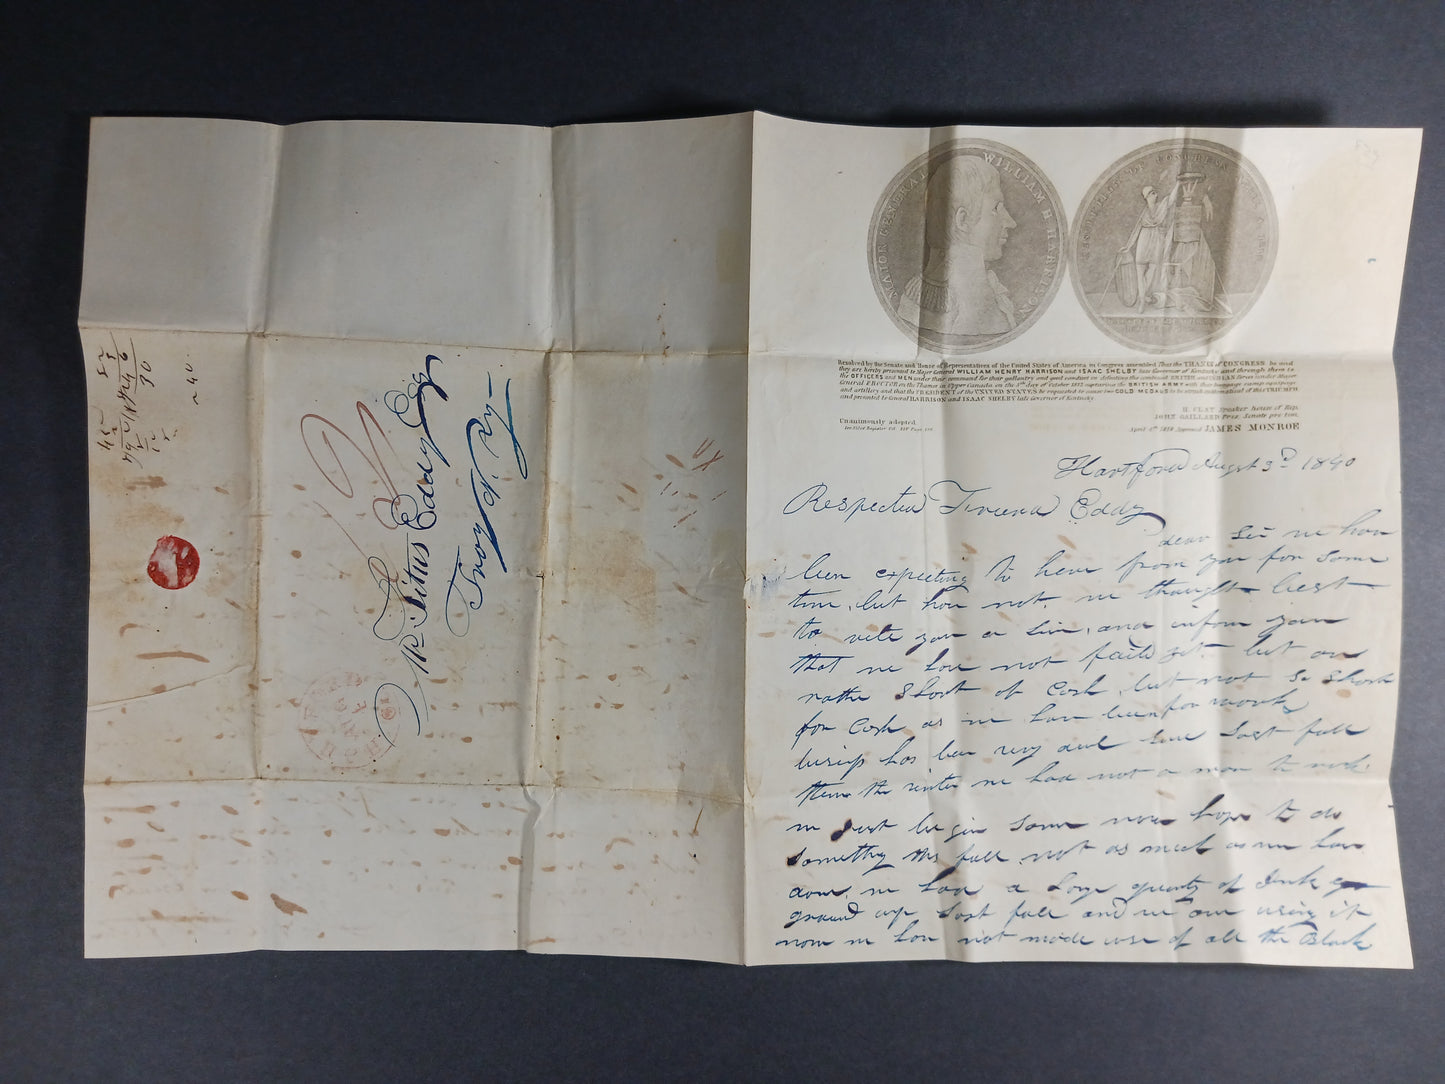 52
45
240
30
Mr Titus Eddy Esq
Troy N. Y.
HARTFORD
CON
AUG
MAJOR GENERAL WILLIAM H. HARRISON.
RESOLUTION OF CONGRESS APRIL 4. 1818.
Resolved by the Senate and House of Representatives of the United States of America in Congress assembled That the THANKS of CONGRESS be and
they are hereby presented to Major General WILLIAM HENRY HARRISON and ISAAC SHELBY late Governor of Kentucky and through them to
the OFFICERS and MEN under their command for their gallantry and good conduct in defeating the combined BRITISH and INDIAN forces under Major
General PROCTOR on the Thames in Upper Canada on the 5th day of October 1813 capturing the BRITISH ARMY with their baggage camp equipage
and artillery and that the PRESIDENT of the UNITED STATES be requested to cause two GOLD MEDALS to be struck emblematical of this TRIUMPH
and presented to General HARRISON and ISAAC SHELBY late Governor of Kentucky.
H CLAY Speaker house of Rep.
JOHN GAILLARD Pres. Senate pro tem.
Unanimously adopted
April 4th 1818 Approved JAMES MONROE
Hartford August 3d 1840
Respected Friend Eddy
dear Sir we have
been expecting to hear from you for some
time, but have not. we thought best
to write you a line, and inform you
that we have not faild yet. but are
rather Short of Cash but not so Short
for Cash as we have been for work
business has been very dull since last fall
then the winter we had not a man to work
we Just begin some now hope to do
Something this fall not as much as we have
done, we have a large quantity of Ink
ground up last fall and we are using it
now we have not made use of all the Black